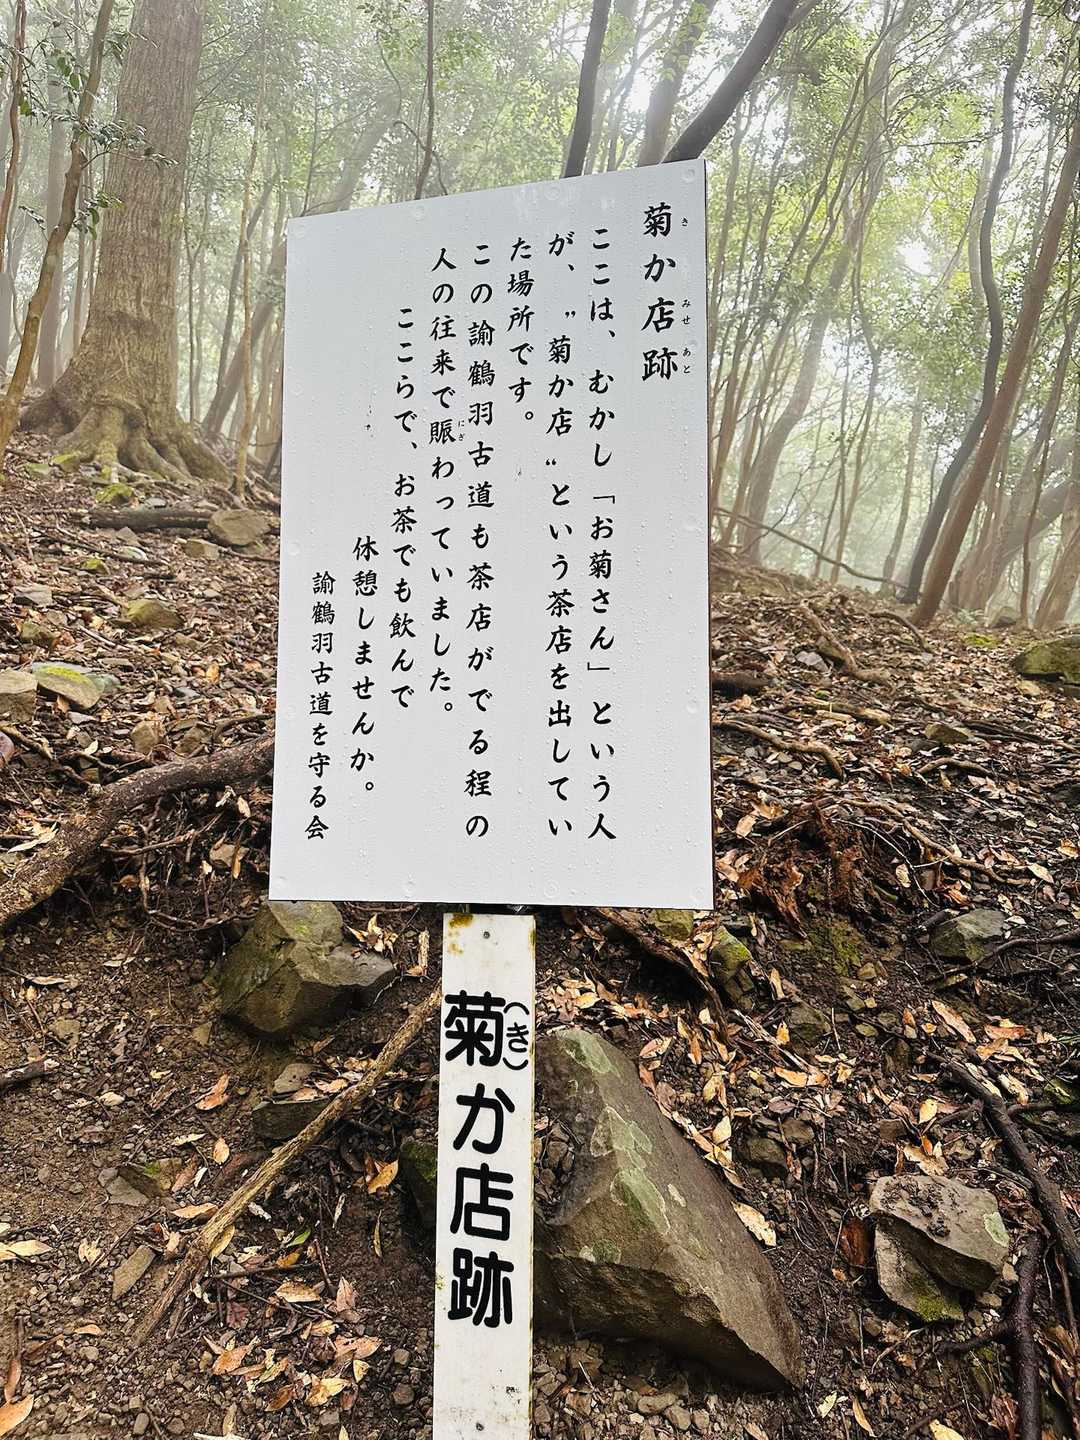 菊か店跡
き みせ あと
ここは、むかし「お菊さん」という人
が、〝菊か店〟という茶店を出してい
た場所です。
この諭鶴羽古道も茶店がでる程の
人の往来で賑わっていました。
にぎ
ここらで、お茶でも飲んで
休憩しませんか。
諭鶴羽古道を守る会
菊か店跡
(き)